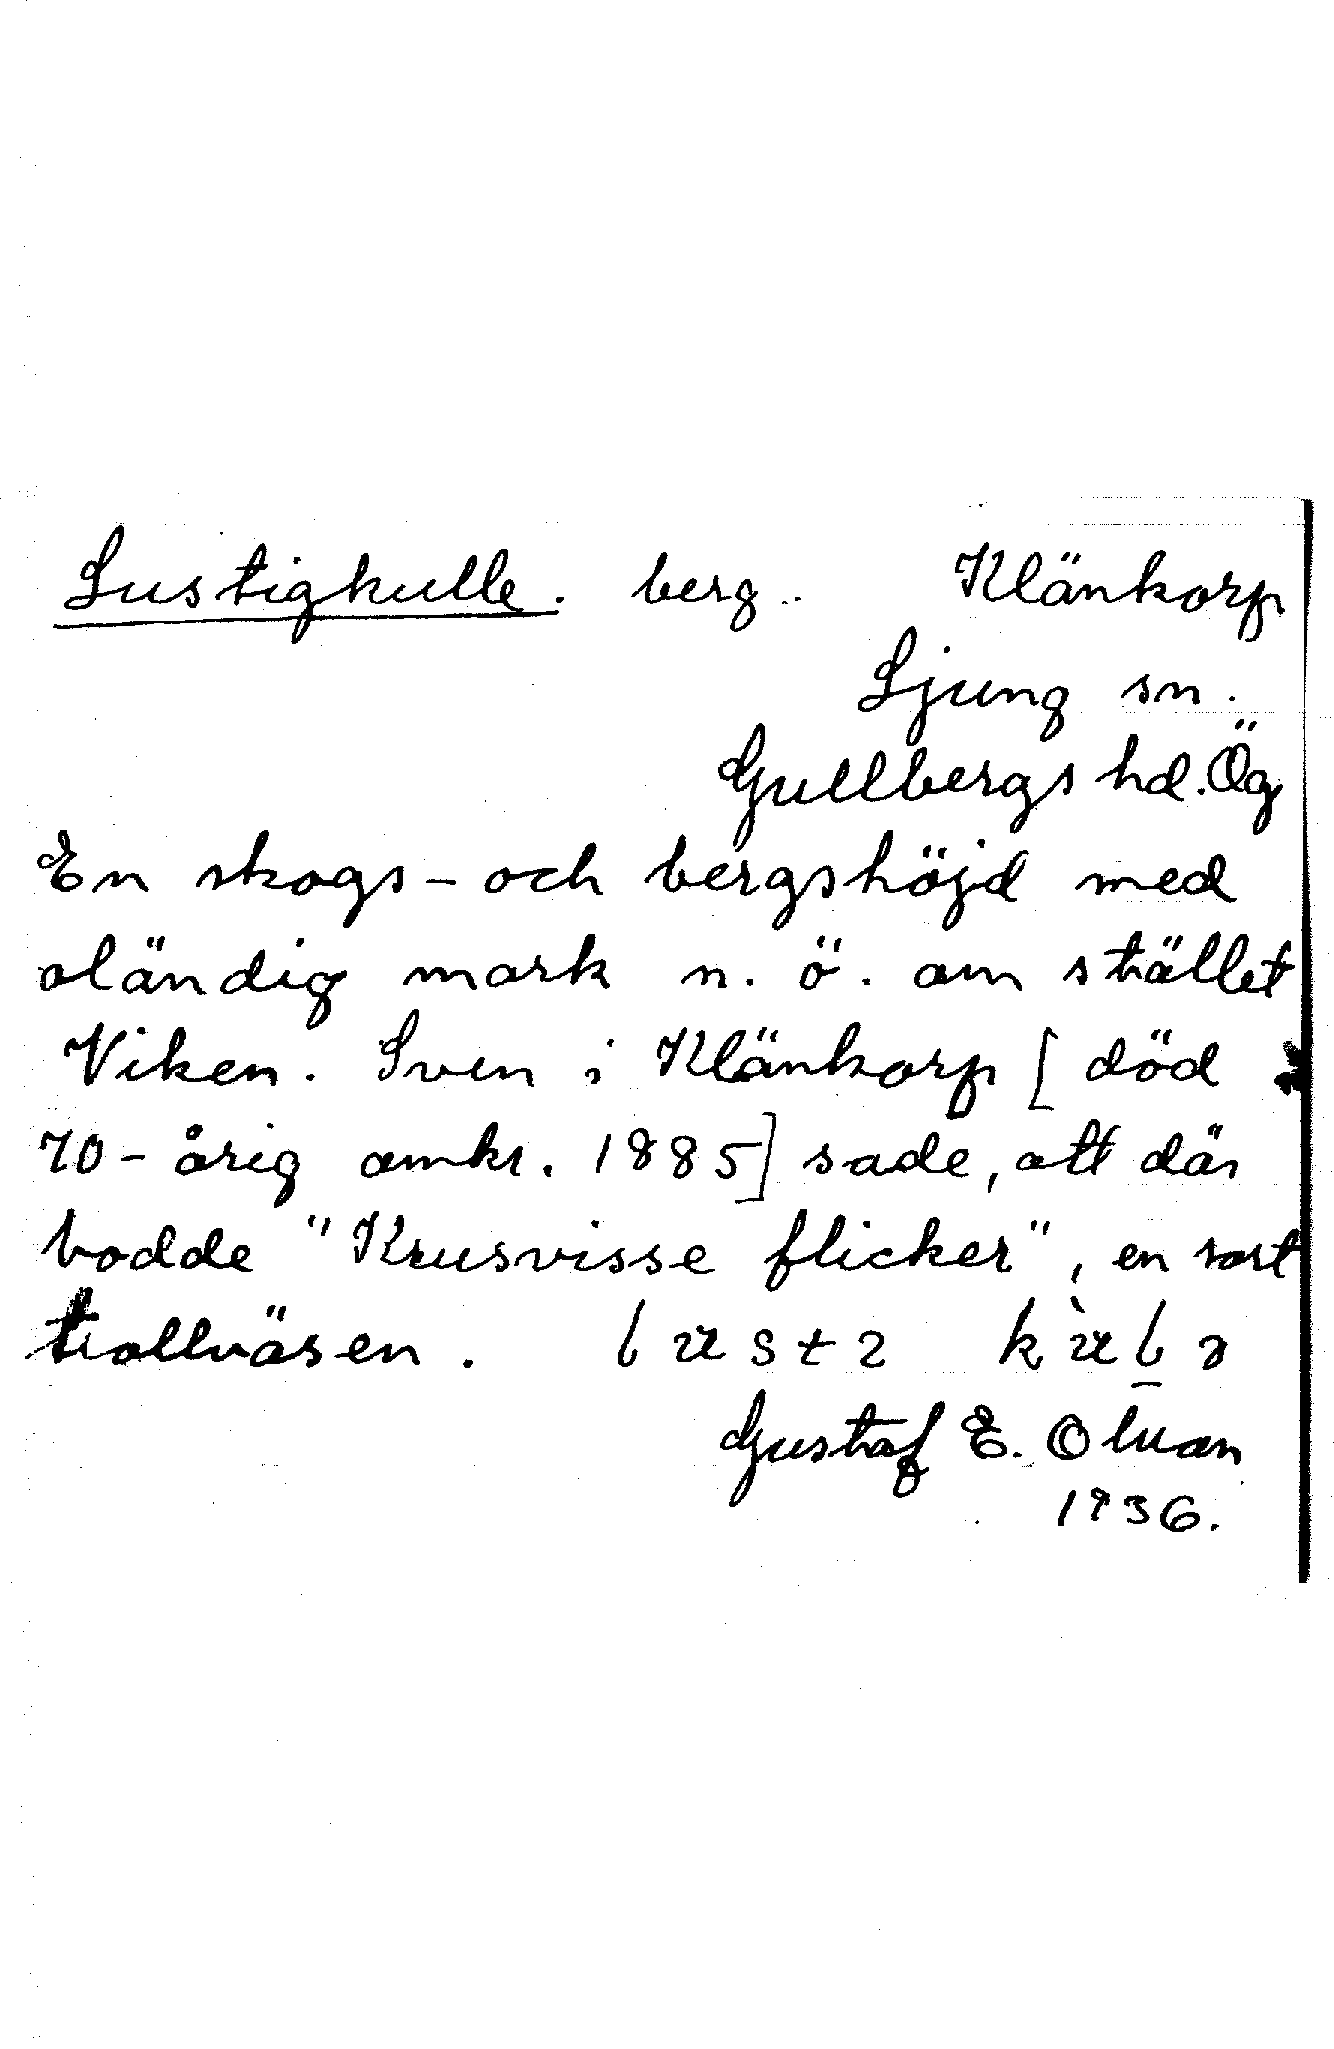 Lustigkulle. berg.. Klänkorp
Ljung sn.
Gullbergs hd. Ög
En skogs- och bergshöjd med
oländig mark n. ö. om stället
Viken. Sven i Klänkorp [död
70-årig omkr. 1885] sade, att där
bodde "Krusvisse flicker", en sort
trollväsen.
Gustaf E. Olman
1936.